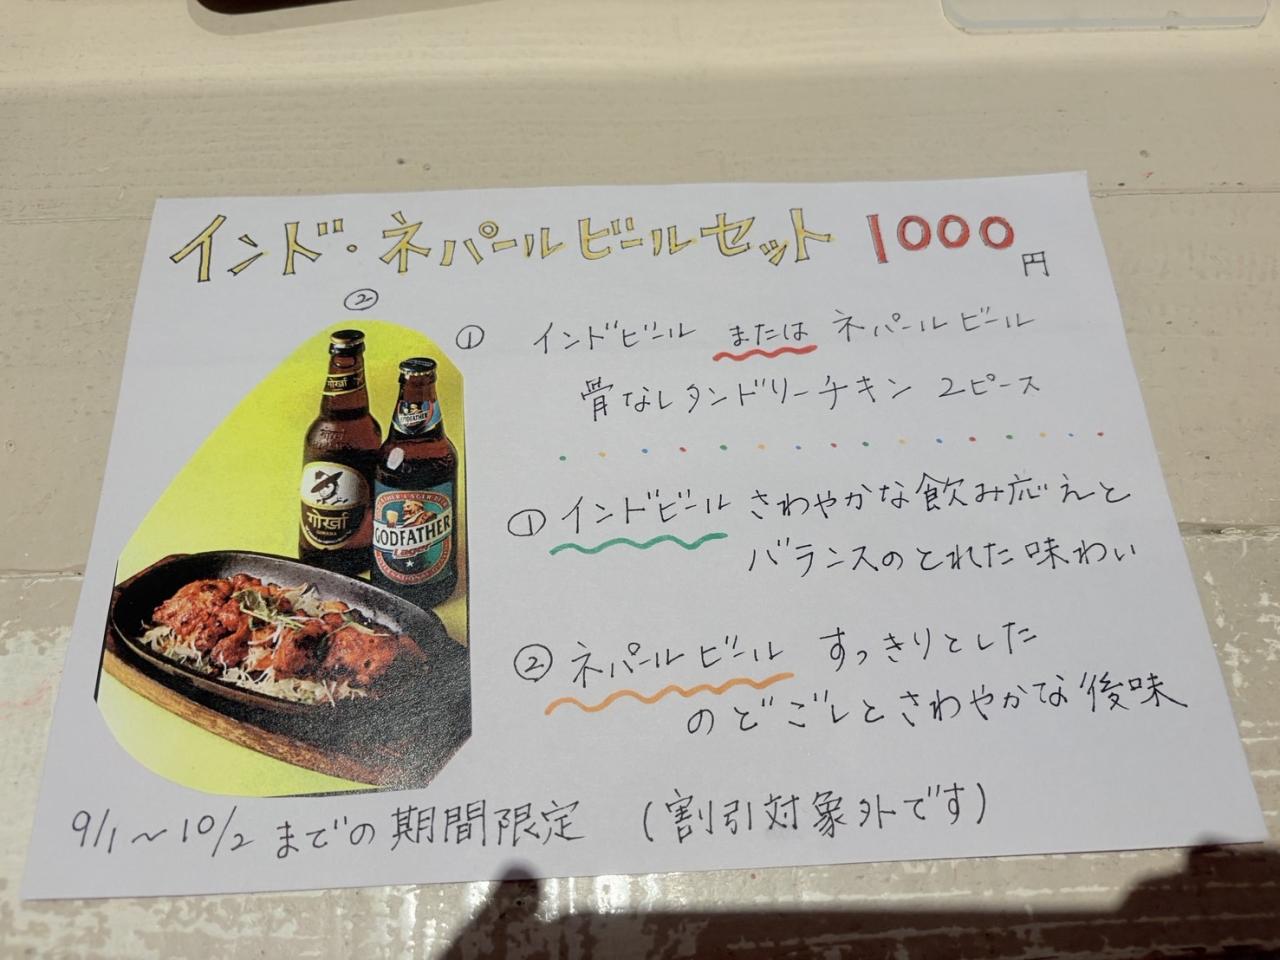 インド・ネパールビールセット 1000円
②
①
インドビール または ネパールビール
骨なしタンドリーチキン 2ピース
गोर्खा
गोर्खा
गोर्खा
GODFATHER
GODFATHER
Lager
①インドビール さわやかな飲み応えと
バランスのとれた味わい
②ネパールビール すっきりとした
のどごしとさわやかな後味
9/1～10/2までの期間限定 (割引対象外です)